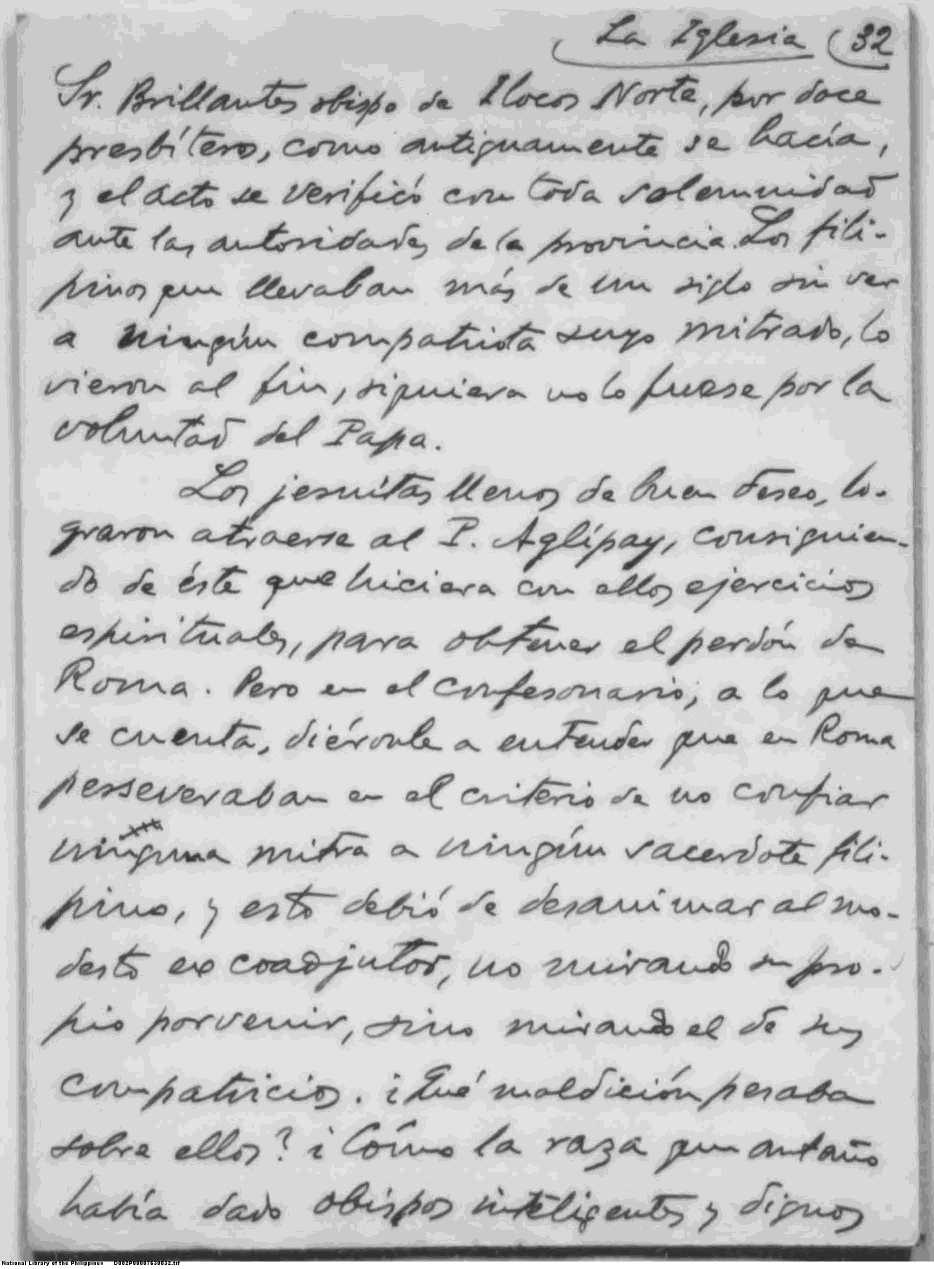 La Iglesia (32
Sr. Brillantes obispo de Ilocos Norte, por doce
presbíteros, como antiguamente se hacía,
y el acto se verificó con toda solemnidad
ante las autoridades de la provincia. Los fili-
pinos que llevaban más de un siglo sin ver
a ningún compatriota suyo mitrado, lo
vieron al fin, siquiera no lo fuese por la
voluntad del Papa.
Los jesuitas llenos de buen deseo, lo-
graron atraerse al P. Aglípay, consiguien-
do de éste que hiciera con ellos ejercicios
espirituales, para obtener el perdón de
Roma. Pero en el confesonario, a lo que
se cuenta, diéronle a entender que en Roma
perseveraban en el criterio de no confiar
ninguna mitra a ningún sacerdote fili-
pino, y esto debió de desanimar al mo-
desto ex coadjutor, no mirando su pro-
pio porvenir, sino mirando el de sus
compatricios. ¿Qué maldición pesaba
sobre ellos? ¿Cómo la raza que antaño
había dado obispos inteligentes y dignos
National Library of the Philippines D002P00007630032.tif